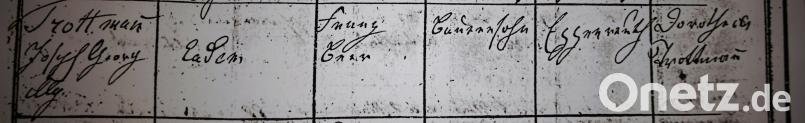 Trottmann
Joseph Georg
Franz
Beer
Bauerssohn
Eppenreuth
Dorothea
Trottmann
Onetz.de